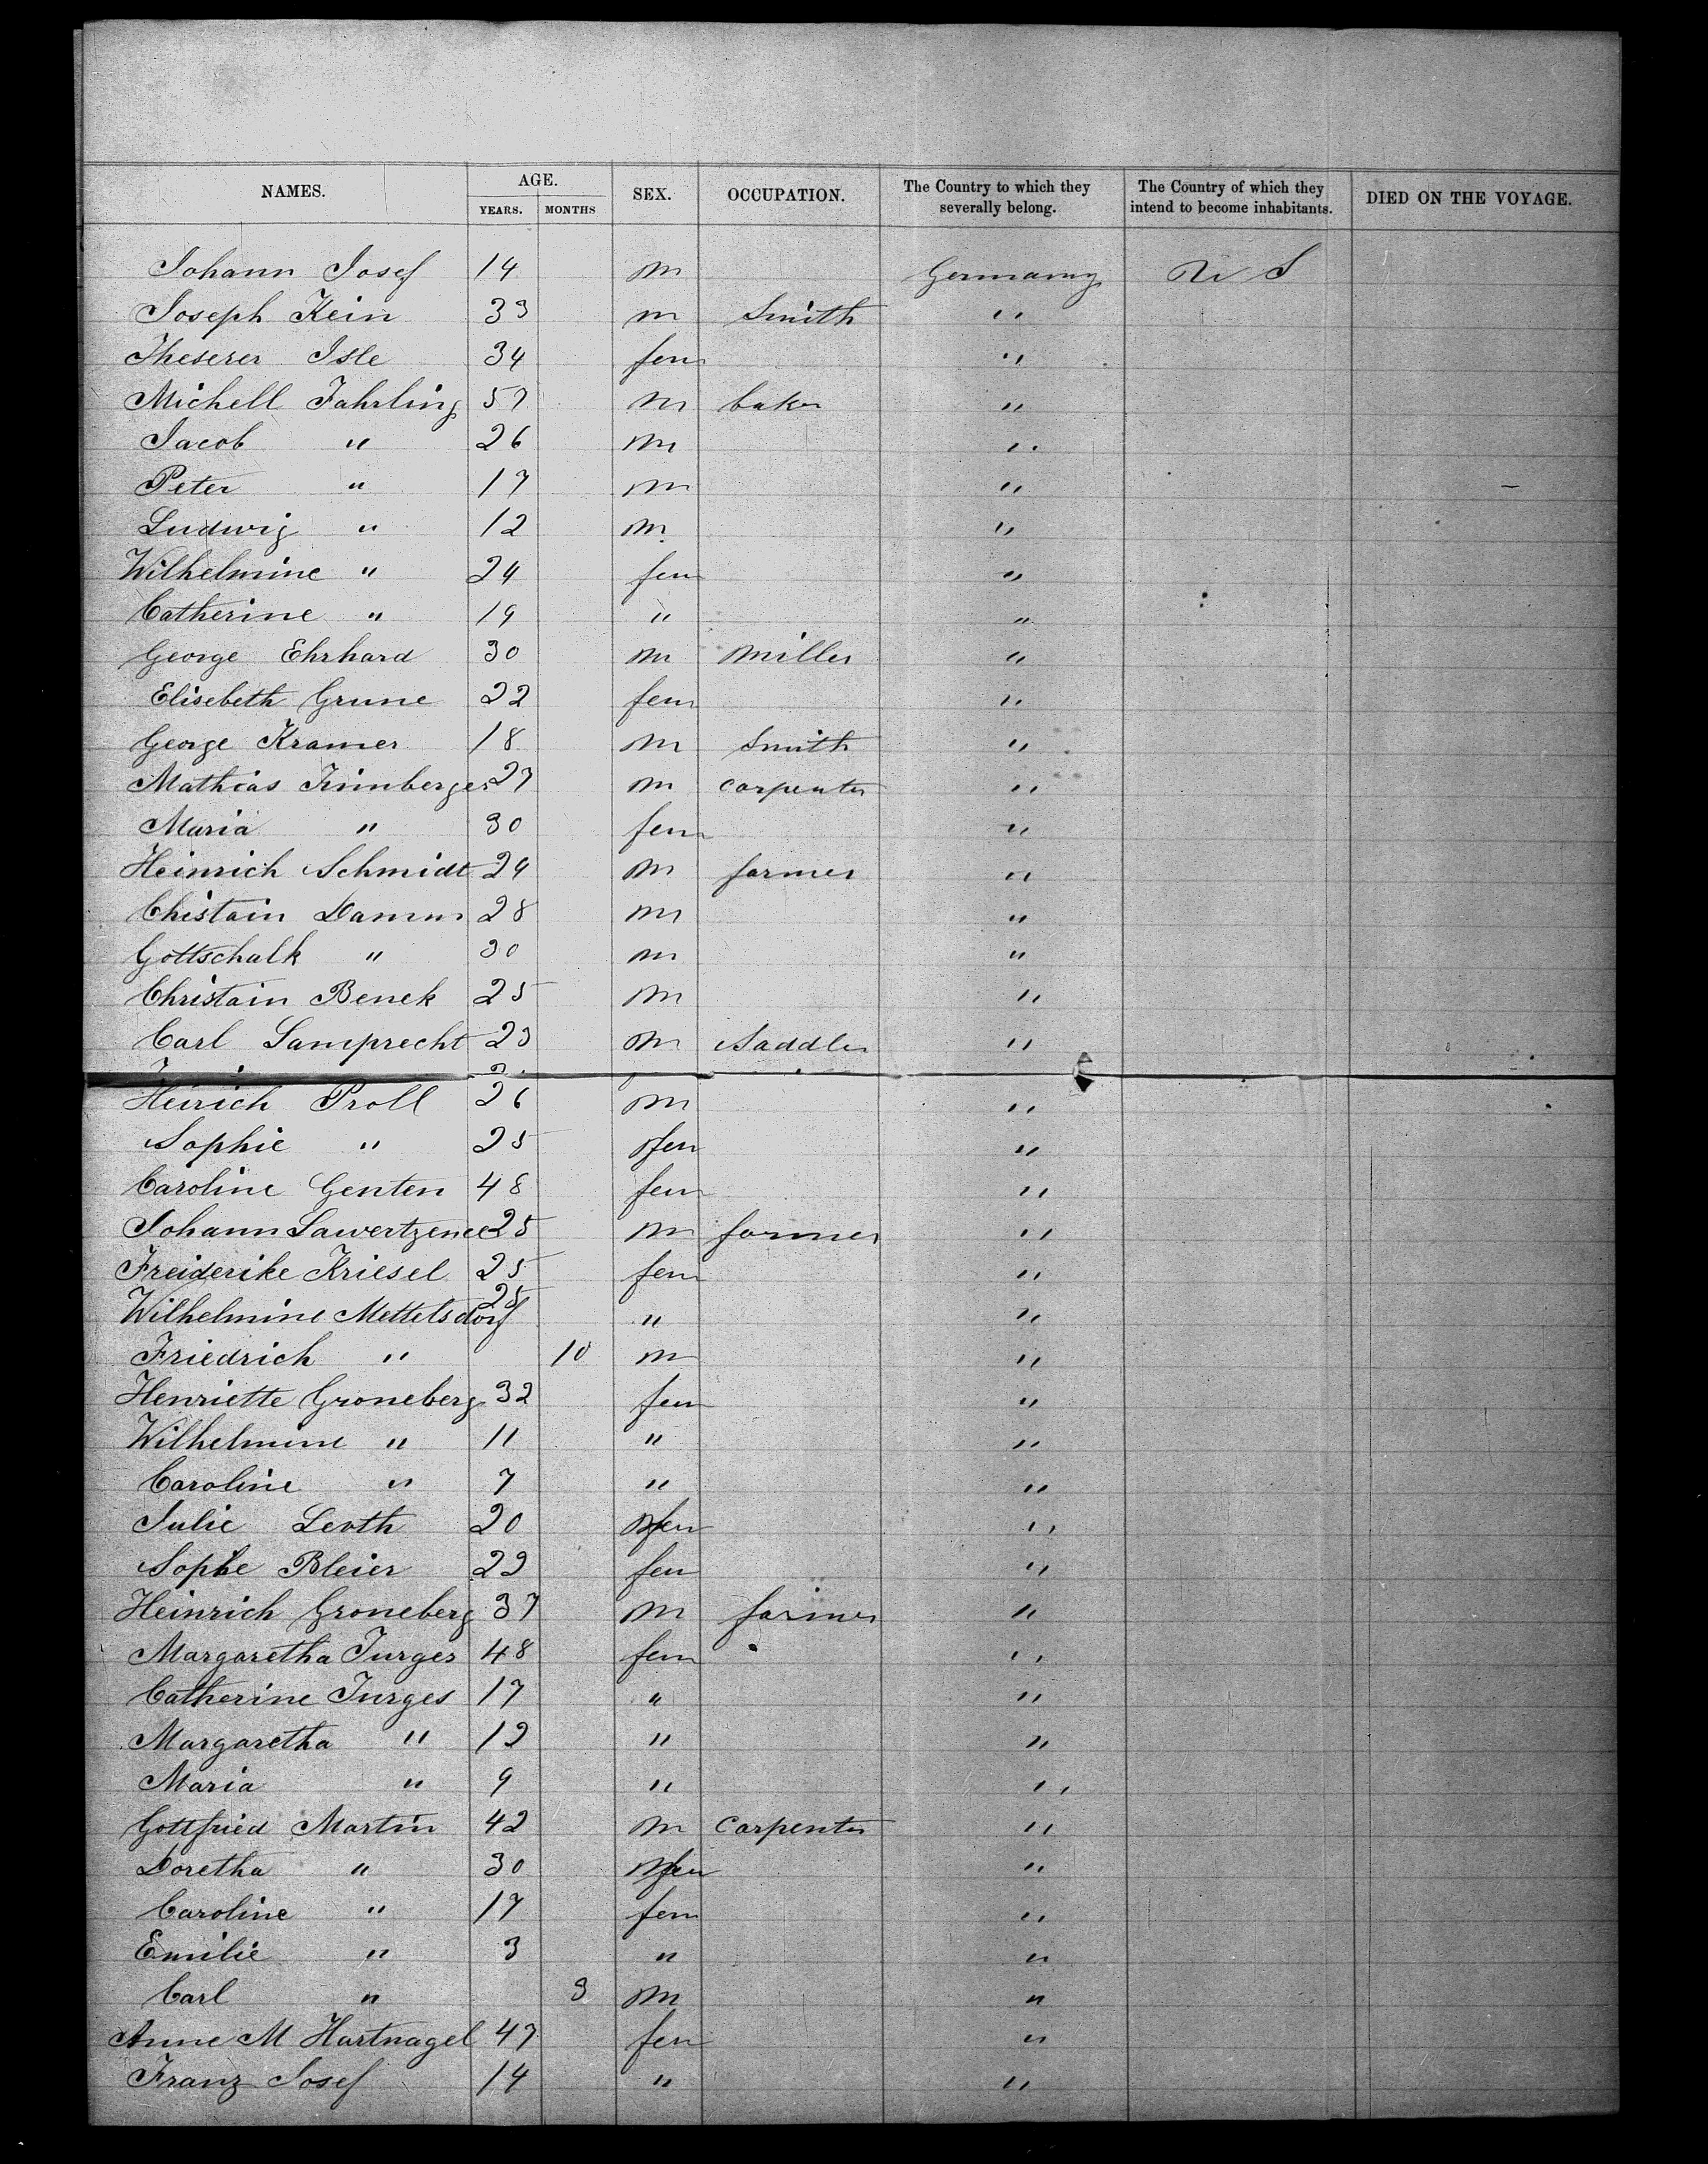 NAMES. AGE. SEX. OCCUPATION. The Country to which they severally belong. The Country of which they intend to become inhabitants. DIED ON THE VOYAGE.
YEARS. MONTHS
Johann Josef 14 m Germany U S
Joseph Kein 33 m Smith "
Theserer Isle 34 fem "
Michell Fahrling 57 m baker "
Jacob " 26 m "
Peter " 17 m "
Ludwig " 12 m "
Wilhelmine " 24 fem "
Catherine " 19 " "
George Ehrhard 30 m Miller "
Elisebeth Grune 22 fem "
George Kramer 18 m Smith "
Mathias 27 m carpenter "
Maria " 30 fem "
Heinrich Schmidt 24 m farmer "
Chistain Damm 28 m "
Gottschalk " 30 m "
Christain Benek 25 m "
Carl Lamprecht 23 m Saddler "
Heirich Proll 26 m "
Sophie " 25 fem "
Caroline Genten 48 fem "
Johann 25 m farmer "
Freiderike Kriesel 25 fem "
Wilhelmine Mettelsdorf 25 " "
Friedrich " 10 m "
Henriette Groneberg 32 fem "
Wilhelmine " 11 " "
Caroline " 7 " "
Julie Leoth 20 fem "
Sophe Bleier 22 fem "
Heinrich Groneberg 37 m farmer "
Margaretha Jurges 48 fem "
Catherine Jurges 17 " "
Margaretha " 12 " "
Maria " 9 " "
Gottfried Martin 42 m Carpenter "
Doretha " 30 fem "
Caroline " 17 fem "
Emilie " 3 " "
Carl " 3 m "
Anne M Hartnagel 47 fem "
Franz Josef 14 " "